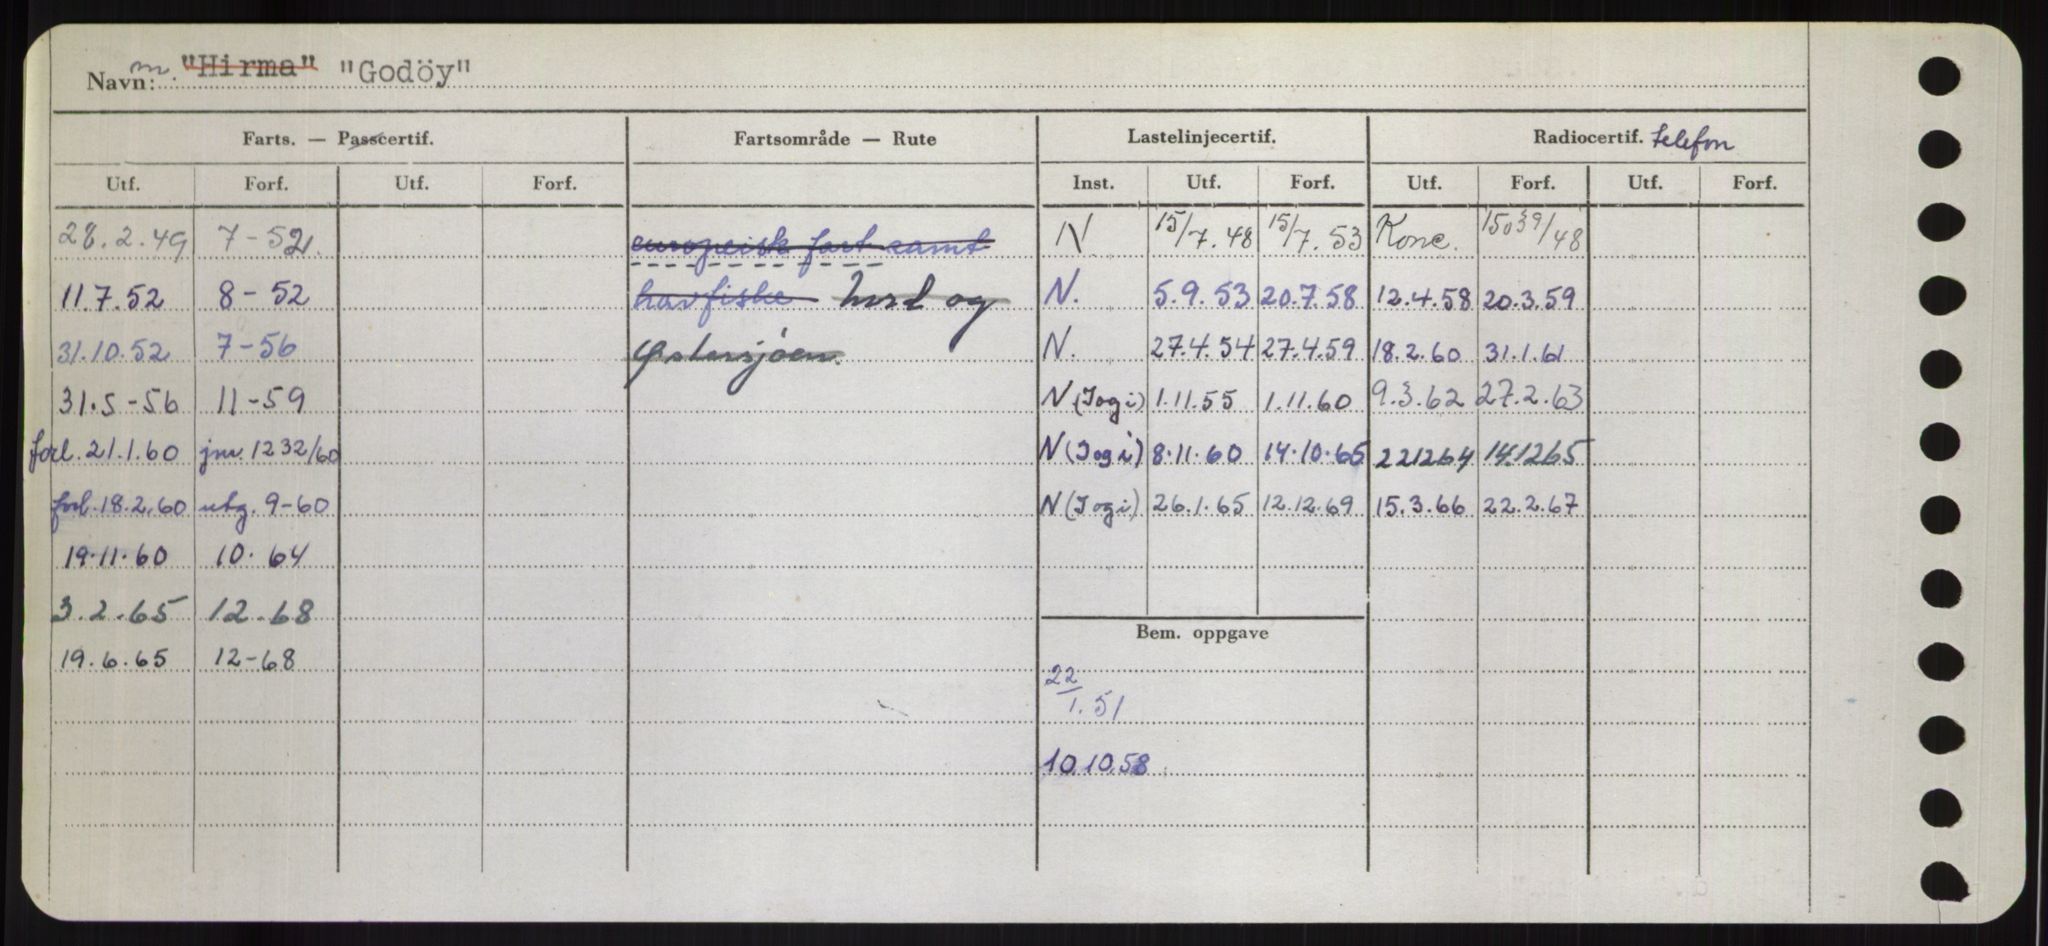 Navn: m. "Hirma" "Godöy"
Farts. — Passcertif. Fartsområde — Rute Lastelinjecertif. Radiocertif. telefon
Utf. Forf. Utf. Forf. Inst. Utf. Forf. Utf. Forf. Utf. Forf.
28.2.49 7-52 europeisk fart samt N 15/7.48 15/7.53 Konc. /48
11.7.52 8-52 havfiske Nord og N. 5.9.53 20.7.58 12.4.58 20.3.59
31.10.52 7-56 Østersjøen. N. 27.4.54 27.4.59 18.2.60 31.1.61
31.5-56 11-59 N (Iogi) 1.11.55 1.11.60 9.3.62 27.2.63
forl. 21.1.60 jnr. 1232/60 N (Iogi) 8.11.60 14.10.65 221264 14.1265
forl. 18.2.60 utg. 9-60 N (Iogi) 26.1.65 12.12.69 15.3.66 22.2.67
19.11.60 10.64
3.2.65 12.68
Bem. oppgave
19.6.65 12-68
22/1.51
10.10.58